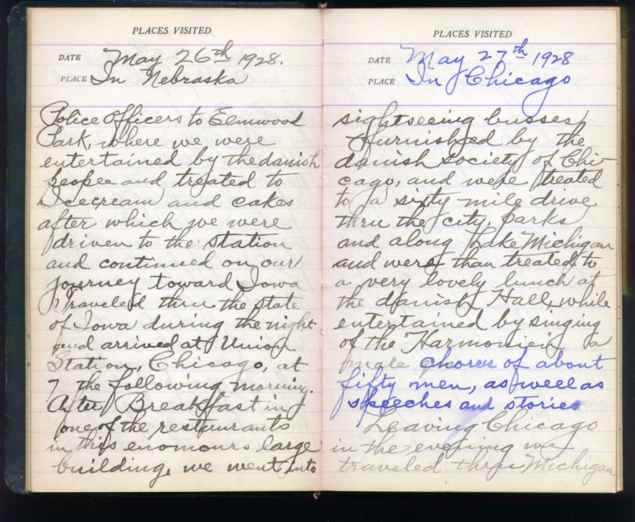 PLACES VISITED
DATE May 26th 1928.
PLACE In Nebraska
Police Officers to Elmwood
Park, where we were
entertained by the danish
people and treated to
Icecream and cakes
after which we were
driven to the station
and continued on our
journey toward Iowa
Traveled thru the state
of Iowa during the night
and arrived at Union
Station, Chicago, at
7 the following morning.
After Breakfast in
one of the restaurants
in this enomours large
building, we went into
PLACES VISITED
DATE May 27th 1928
PLACE In Chicago
sightseeing busses
furnished by the
danish society of Chi-
cago, and were treated
to a sixty mile drive
thru the city, parks
and along Lake Michigan
and were than treated to
a very lovely lunch at
the danish Hall, while
entertained by singing
of the Harmonien, a
male chorer of about
fifty men, as well as
speeches and stories
Leaving Chicago
in the evening we
traveled thru Michigan